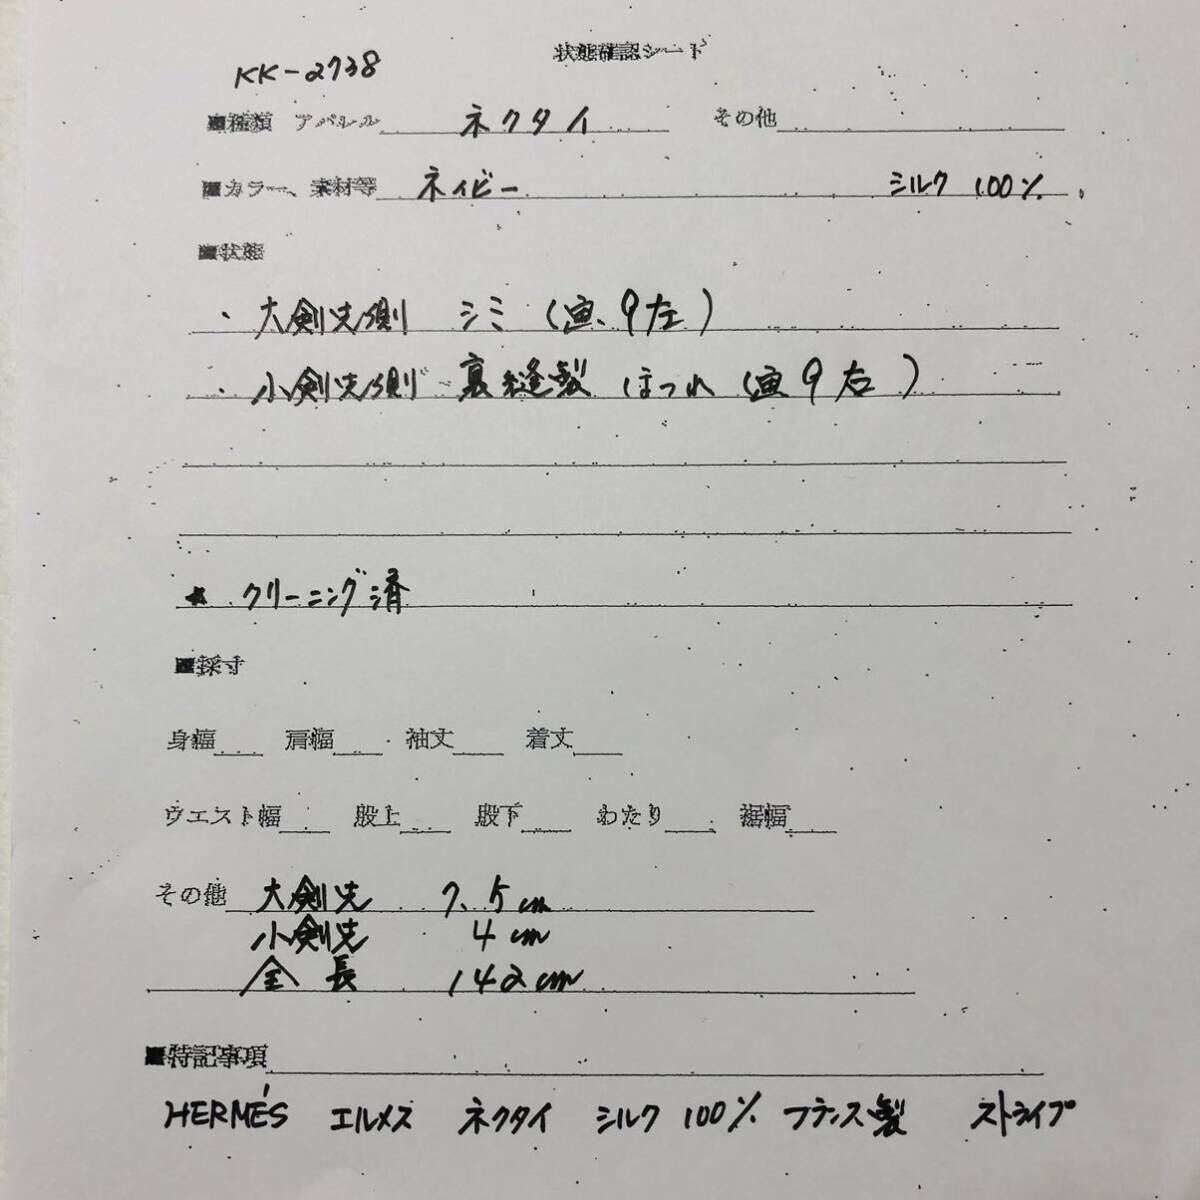 状態確認シート
KK-2738
■種類 アパレル ネクタイ その他
■カラー、素材等 ネイビー シルク 100%
■状態
・大剣先側 シミ (画、9左)
・小剣先側 裏縫製 ほつれ (画9右)
★クリーニング済
■採寸
身幅 肩幅 袖丈 着丈
ウエスト幅 股上 股下 わたり 裾幅
その他 大剣先 7.5cm
小剣先 4cm
全長 142cm
■特記事項
HERMÉS エルメス ネクタイ シルク 100% フランス製 ストライプ